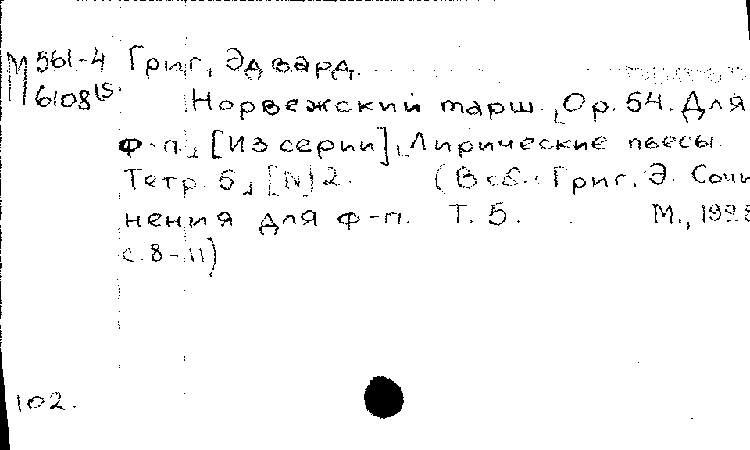 М 561-4 Григ, Эдвард.
6108 Норвежский марш. Ор. 54. Для
ф-п. [Из серии] Лирические пьесы.
Тетр. 5, [N] 2. (В сб.: Григ, Э. Сочи
нения для ф-п. Т. 5. М.,
с. 8-11)
102.